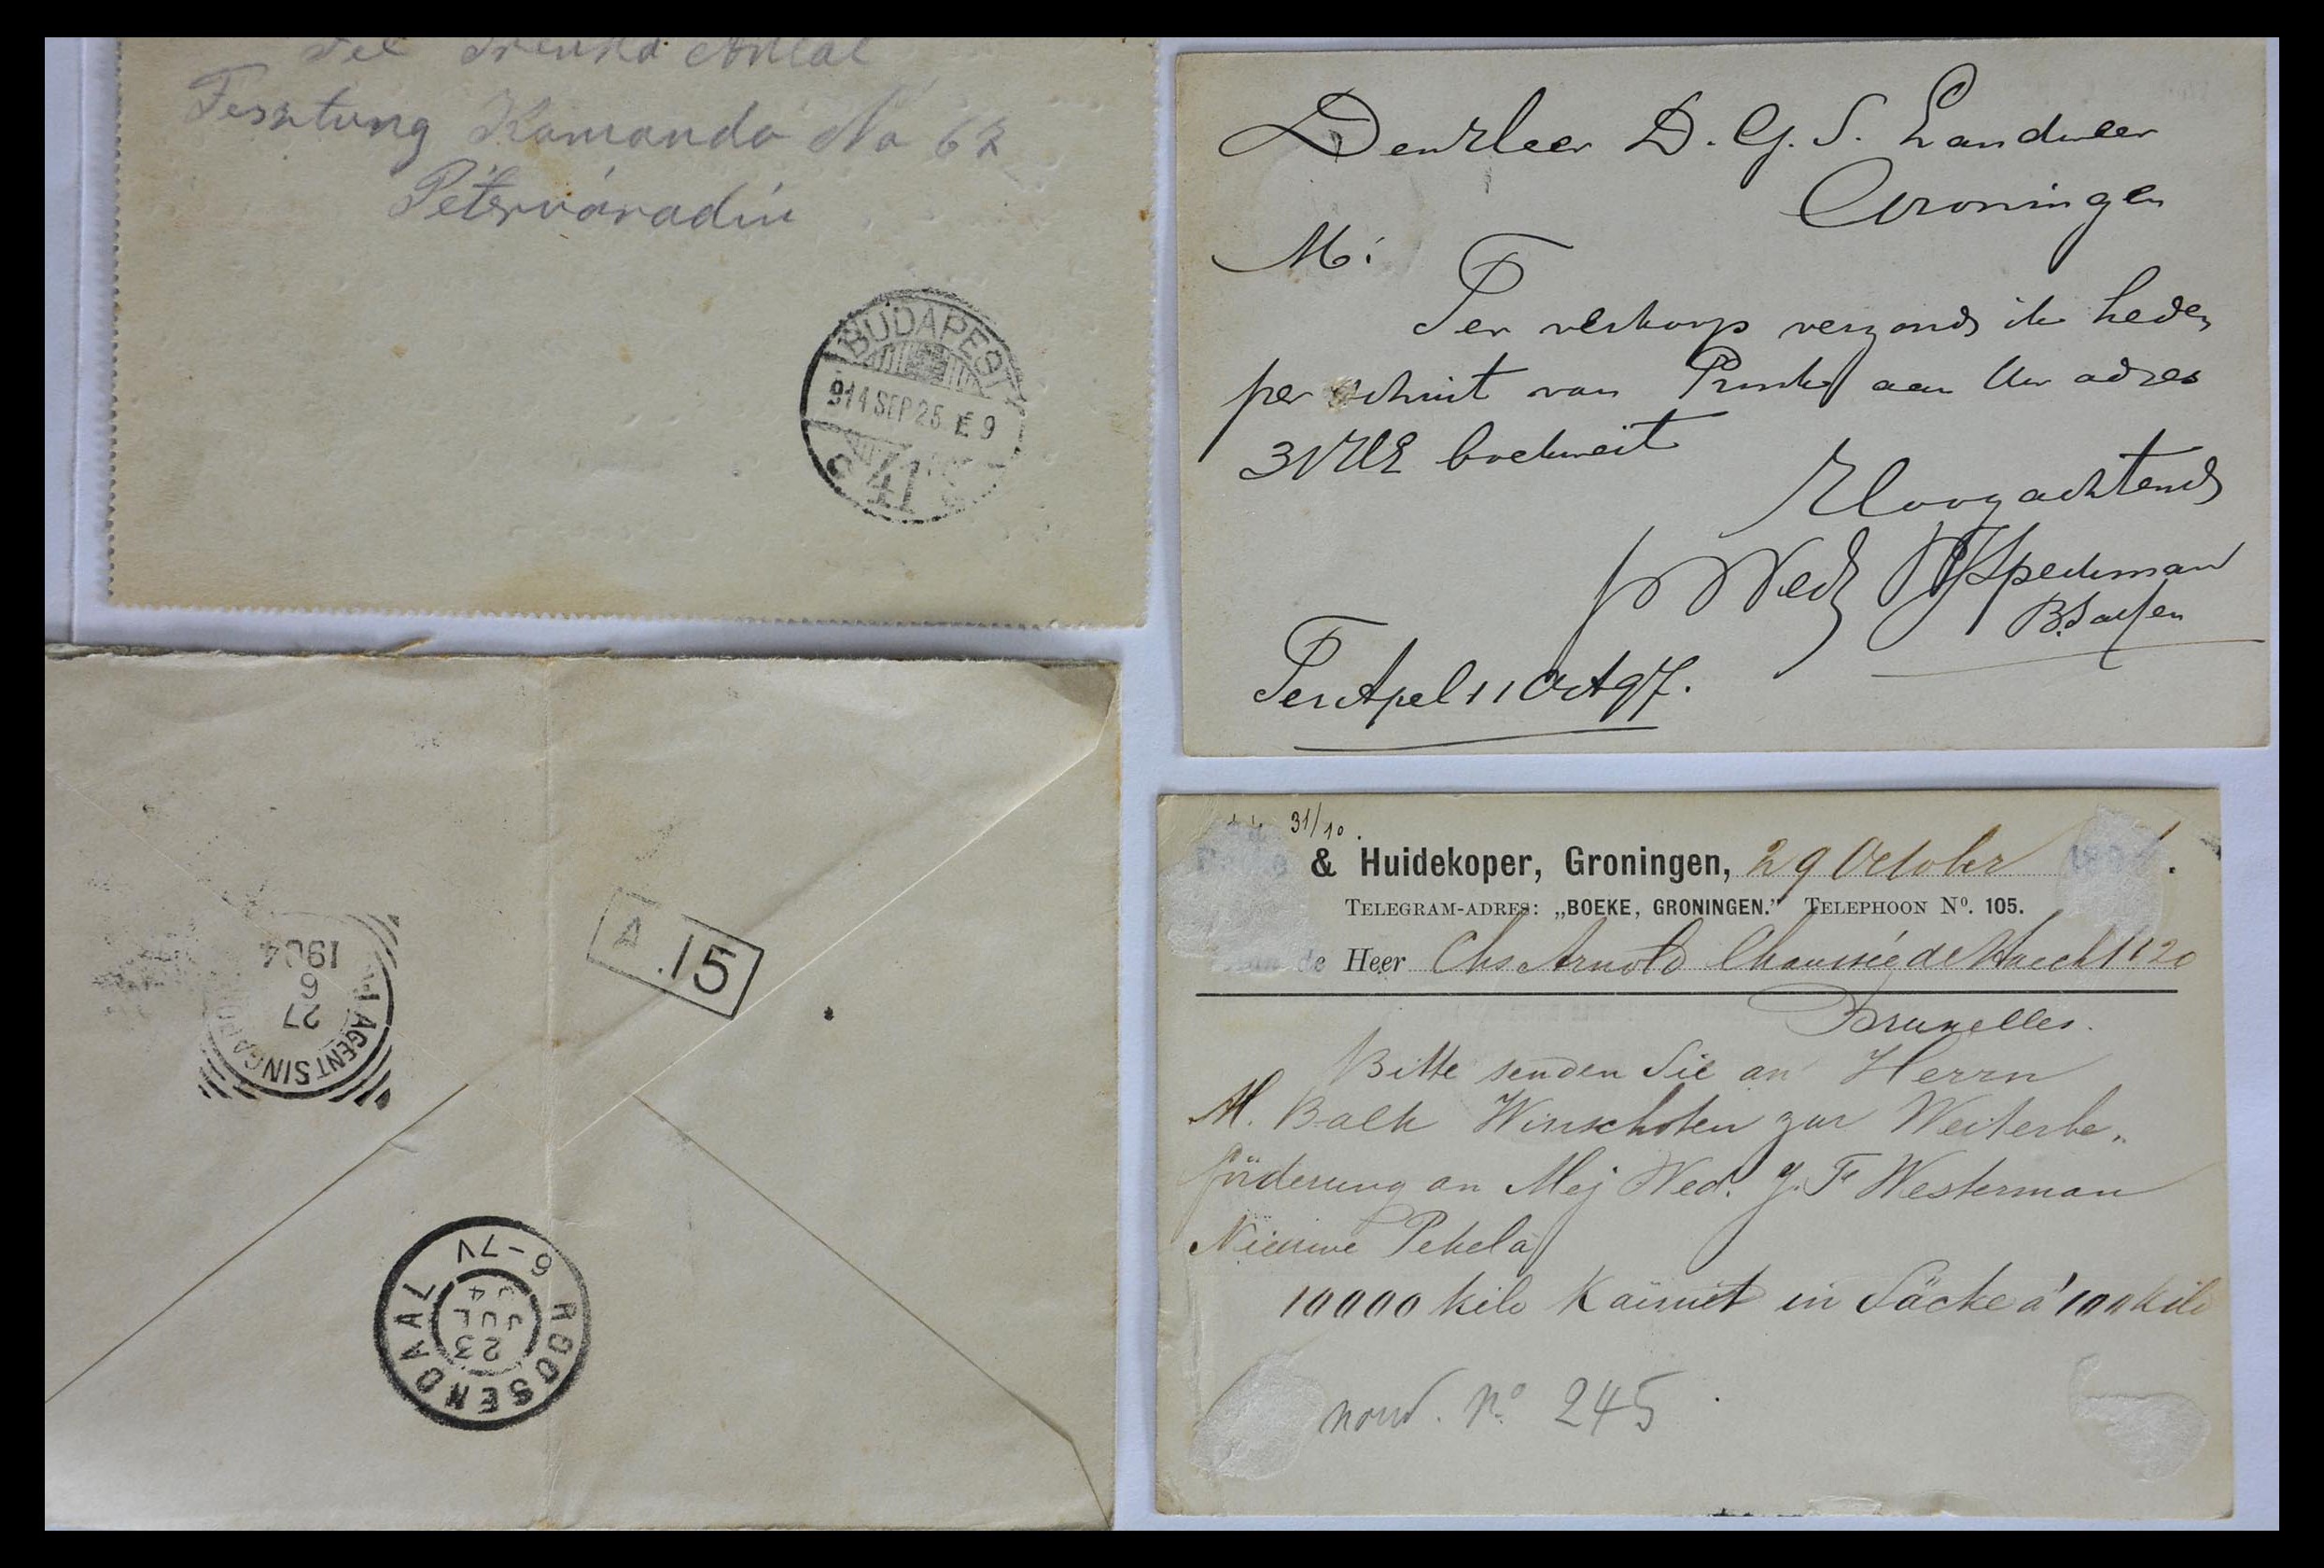 Fesztung Kamando No 63
Péterváradin
BUDAPEST
914 SEP 25 E 9
41
Den Heer D. G. S. Landweer
Groningen
M:
Per verkoop verzond ik heden
per schuit van aan Uw adres
3 boekweit
Hoogachtend
Wed Speckman
Ter Apel 11 Oct 97.
AGENT SINGA
27
6
1904
A.15
ROOSENDAAL
23
JUL
04
6-7V
31/10.
& Huidekoper, Groningen, 29 October
TELEGRAM-ADRES: „BOEKE, GRONINGEN." TELEPHOON No. 105.
de Heer Chs Arnold Chaussée de 120
Bruxelles.
Bitte senden Sie an Herrn
H. Balk Winschoten zur Weiterbe„
förderung an Mej Wed. J. F Westerman
Nieuwe Pekela
10000 kilo Kaïniet in Säcke á 100 kilo
no 245